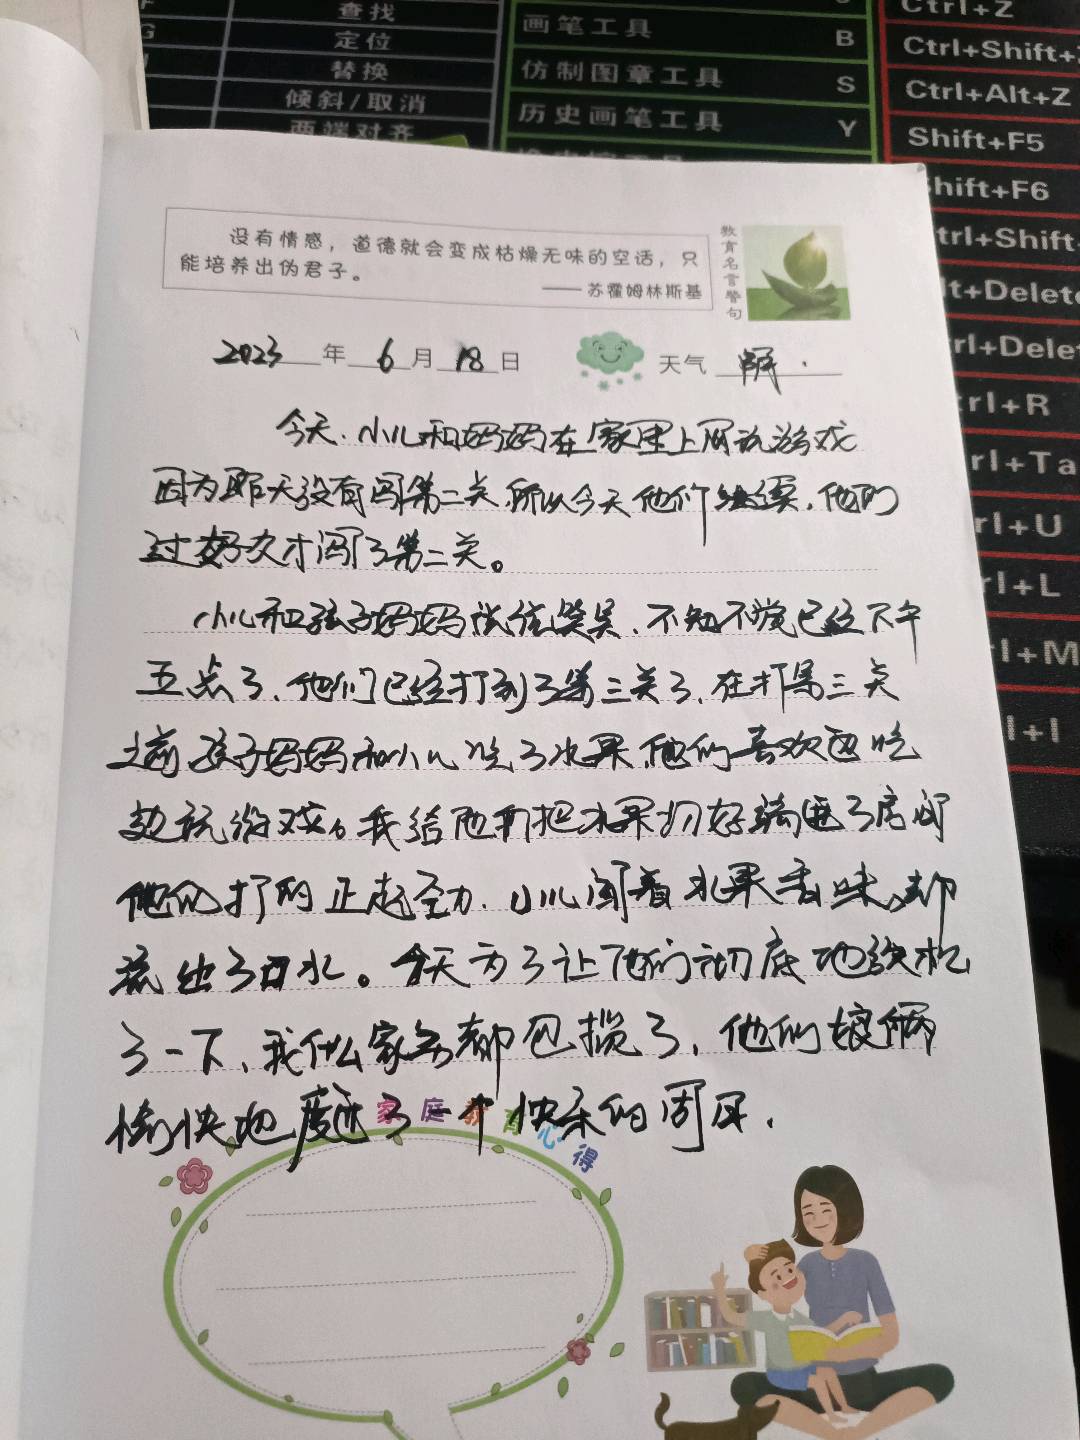 查找
定位
替换
倾斜/取消
两端对齐
画笔工具 B
仿制图章工具 S
历史画笔工具 Y
Ctrl+Z
Ctrl+Shift+
Ctrl+Alt+Z
Shift+F5
Shift+F6
trl+Shift+
lt+Delete
rl+Delet
trl+R
rl+Ta
rl+U
rl+L
l+M
l+I
没有情感，道德就会变成枯燥无味的空话，只
能培养出伪君子。
——苏霍姆林斯基
教育名言警句
2023年6月18日 天气
今天、小儿和妈妈在家里上网玩游戏
因为昨天没有闯第二关,所以今天他们继续,他们
过好久才闯了第二关。
小儿和孩子妈妈谈信笑吴、不知不觉已经下午
五点了、他们已经打到了第三关了、在打第三关
之前孩子妈妈和小儿吃了水果,他们喜欢边吃
边玩游戏。我给他们把水果切好端进了房间
他们打的正起劲、小儿闻着水果香味,都
流出了口水。今天为了让他们切底地放松
了一下、我什么家务都包揽了,他们娘俩
愉快地度过了一个快乐的周日.
家庭教育心得